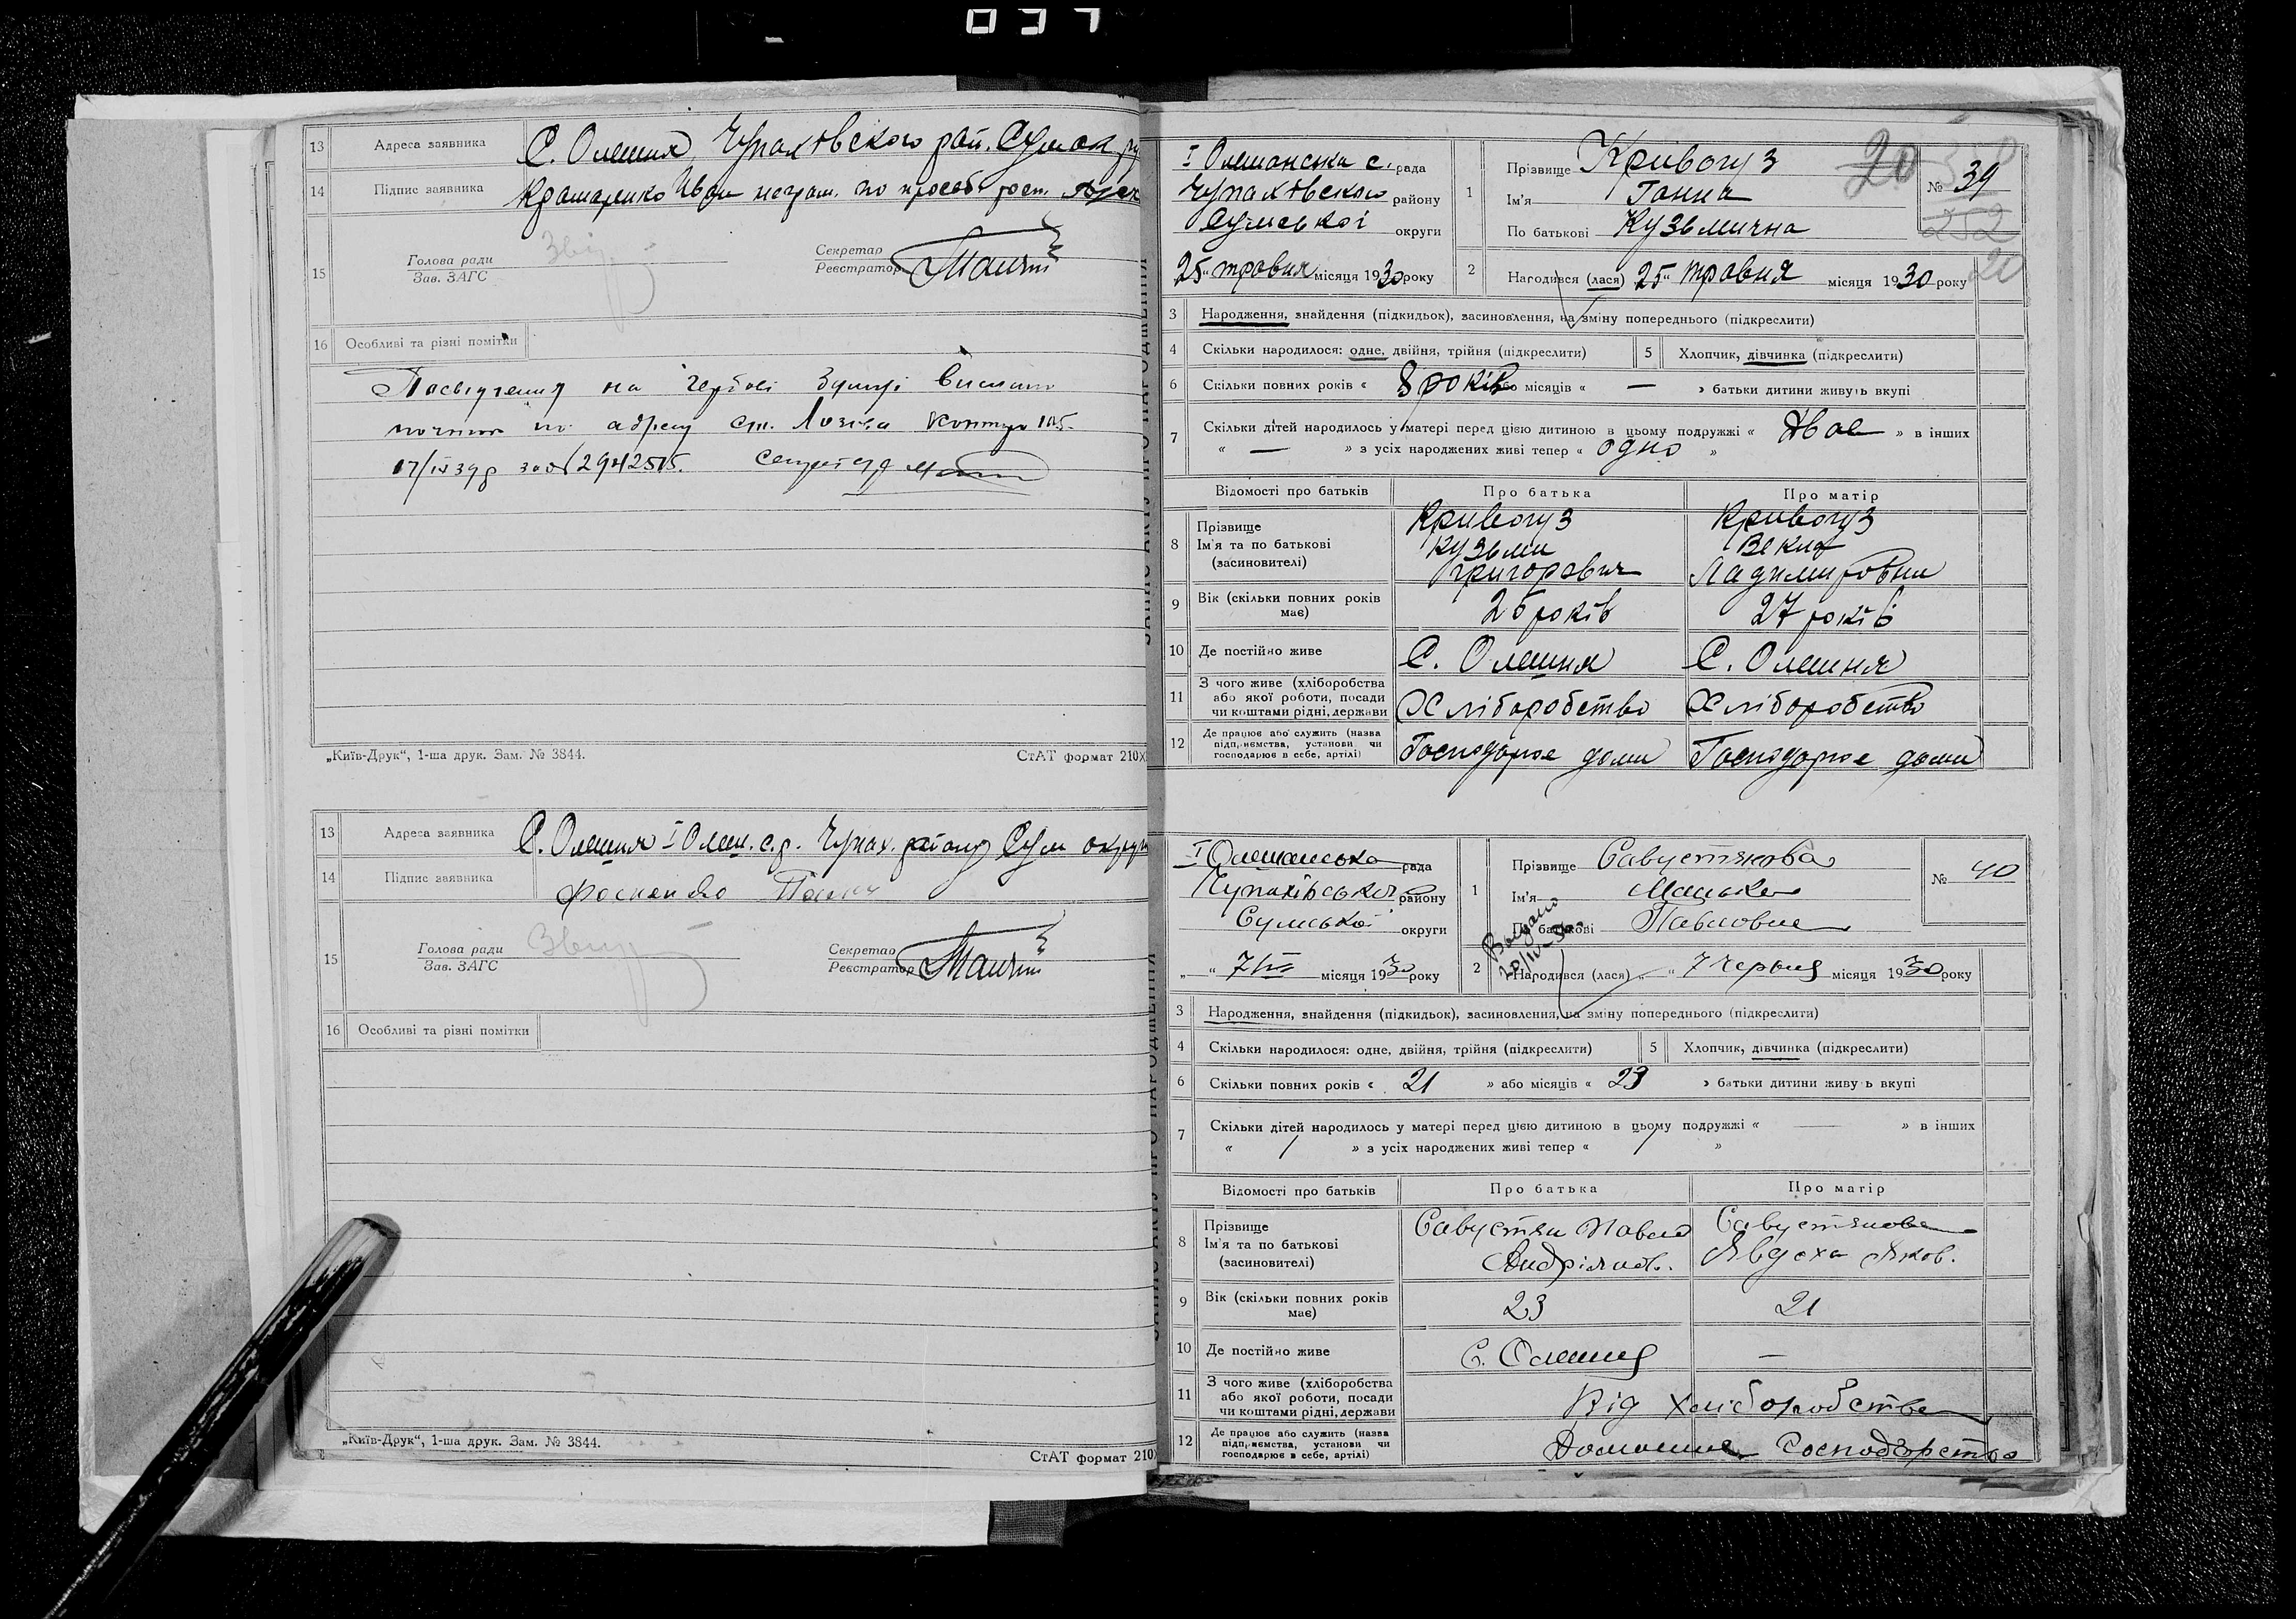 037
13 Адреса заявника С. Олешня, Чупахівского рай. Сумск
14 Підпис заявника Крамаренко Иван неграм. по просьбе
15 Голова ради Зав. ЗАГС Секретар Реєстратор
16 Особливі та різні помітки
Посвідчення на
по адресу ст. Лозова
17/IV 39 р
„Київ-Друк“, 1-ша друк. Зам. № 3844. СтАТ формат 210х
13 Адреса заявника С. Олешня І Олеш. с.р. Чупах. району Сум округи
14 Підпис заявника
15 Голова ради Зав. ЗАГС Секретар Реєстратор
16 Особливі та різні помітки
„Київ-Друк“, 1-ша друк. Зам. № 3844.
СтАТ формат 210
І Олешанська с. рада
Чупахівского району
Сумської округи
25 " травня місяця 1930 року
1 Прізвище Кривогуз
Ім'я Ганна
По батькові Кузьмична
20
№ 39
252
20
2 Народився (лася) 25 " травня місяця 1930 року
3 Народження, знайдення (підкидьок), засиновлення, на зміну попереднього (підкреслити)
4 Скільки народилося: одне, двійня, трійня (підкреслити) 5 Хлопчик, дівчинка (підкреслити)
6 Скільки повних років « 8 років або місяців « — » батьки дитини живуть вкупі
7 Скільки дітей народилось у матері перед цією дитиною в цьому подружжі « Двое » в інших
« — » з усіх народжених живі тепер « одно »
Відомості про батьків Про батька Про матір
8 Прізвище Кривогуз Кривогуз
Ім'я та по батькові Кузьма Векла
(засиновителі) Григорович Ладимировна
9 Вік (скільки повних років має) 26 років 27 років
10 Де постійно живе С. Олешня С. Олешня
11 З чого живе (хліборобства або якої роботи, посади чи коштами рідні, держави Хліборобство Хліборобство
12 Де працює або служить (назва підприємства, установи чи господарює в себе, артілі) Господарює дома Господарює дома
ЗАПИС АКТУ ПРО НАРОДЖЕННЯ
І Олешанська рада
Чупахівської району
Сумської округи
„ “ 7/VI місяця 1930 року
1 Прізвище Савустянова
Ім'я
По батькові Павловна
№ 40
Видано
2 Народився (лася) „ “ 7 червня місяця 1930 року
3 Народження, знайдення (підкидьок), засиновлення, на зміну попереднього (підкреслити)
4 Скільки народилося: одне, двійня, трійня (підкреслити) 5 Хлопчик, дівчинка (підкреслити)
6 Скільки повних років « 21 » або місяців « 23 » батьки дитини живуть вкупі
7 Скільки дітей народилось у матері перед цією дитиною в цьому подружжі « — » в інших
« / » з усіх народжених живі тепер « / »
Відомості про батьків Про батька Про матір
8 Прізвище Савустян Павло Савустянова
Ім'я та по батькові Андріянов. Явдоха Яков.
(засиновителі)
9 Вік (скільки повних років має) 23 21
10 Де постійно живе С. Олешня —
11 З чого живе (хліборобства або якої роботи, посади чи коштами рідні, держави Від хліборобства
12 Де працює або служить (назва підприємства, установи чи господарює в себе, артілі) Домашнє Господарство
ЗАПИС АКТУ ПРО НАРОДЖЕННЯ